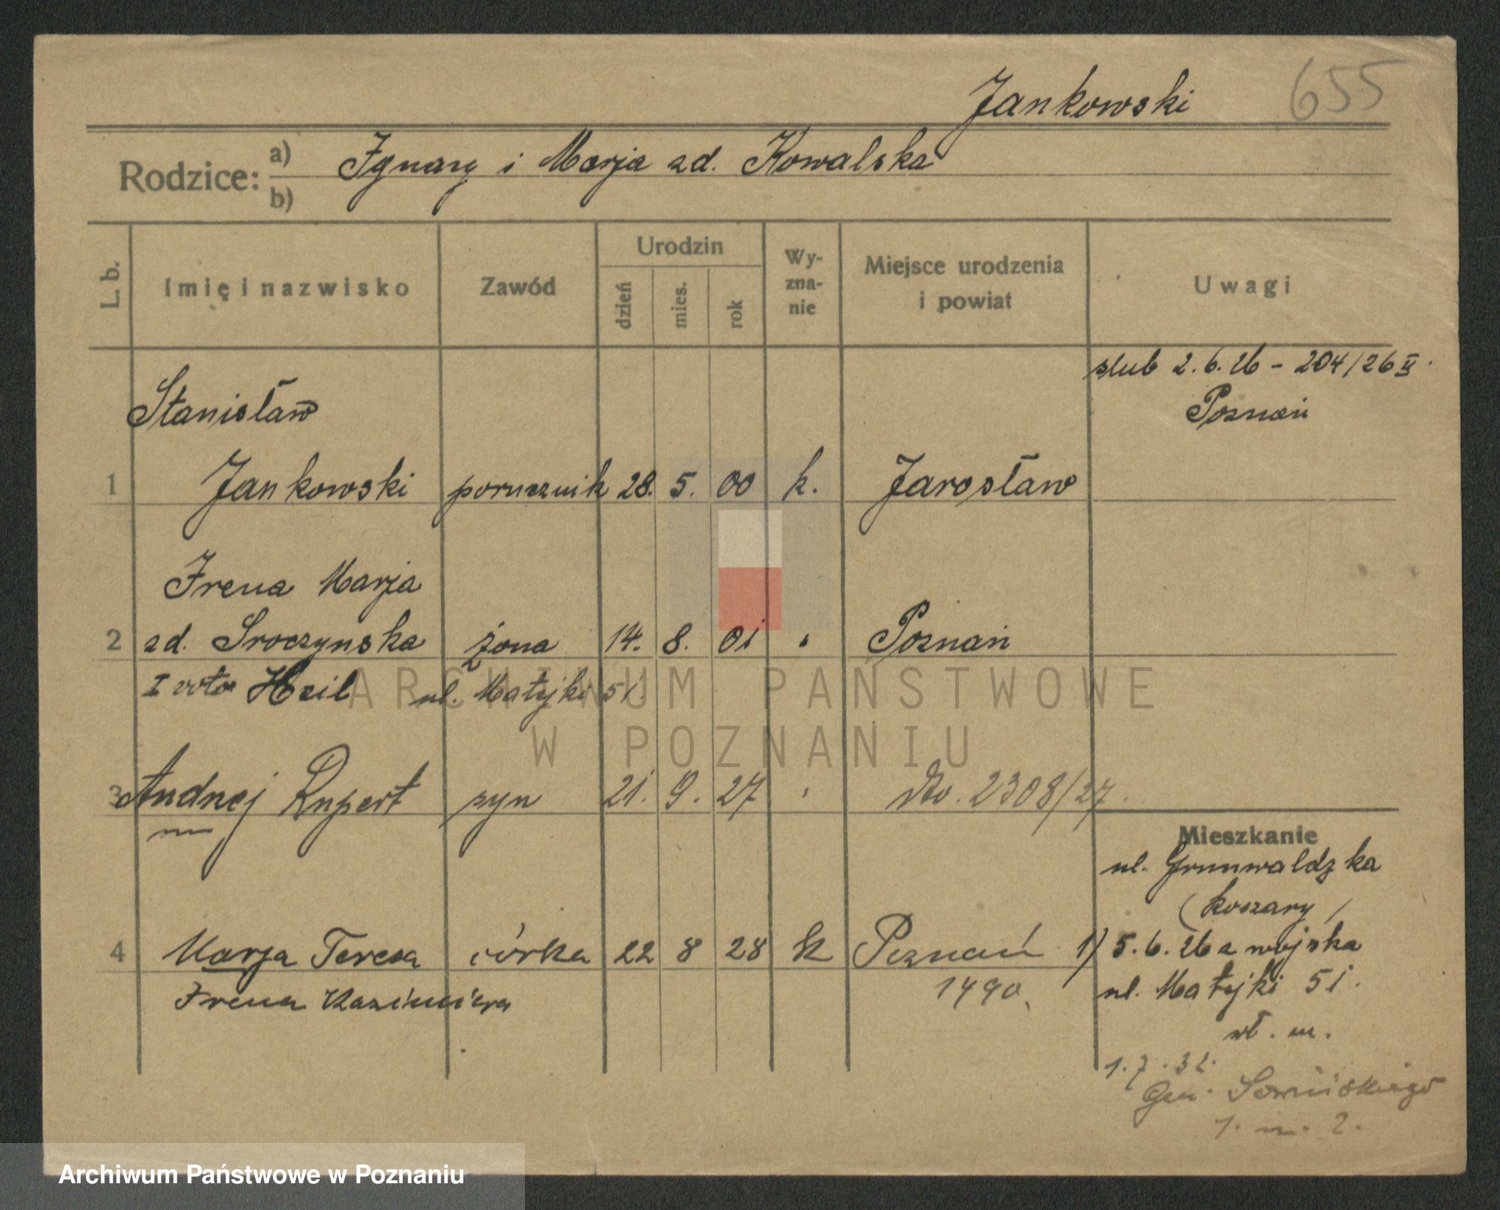 Jankowski 655
Rodzice: a) Ignacy i Marja zd. Kowalska
b)
L. b. Imię i nazwisko Zawód Urodzin dzień mies. rok Wy-zna-nie Miejsce urodzenia i powiat Uwagi
ślub 2.6.26 - 204/26 II.
Poznań
Stanisław
1 Jankowski porucznik 28. 5. 00 k. Jarosław
Irena Marja
2 zd. Sroczynska żona 14. 8. 01 " Poznań
I voto Heil ul. Matejki 51.
3 Andrzej Rupert syn 21. 9. 27 " 2308/27.
Mieszkanie
ul. Grunwaldzka
(koszary)
4 Marja Teresa córka 22 8 28 k Poznań 1) 5.6.26 z wojska
Irena Kazimiera 1490. ul. Matejki 51.
wł. m.
1.7.32.
Gen.
1. m. 2.
ARCHIWUM PAŃSTWOWE
W POZNANIU
Archiwum Państwowe w Poznaniu